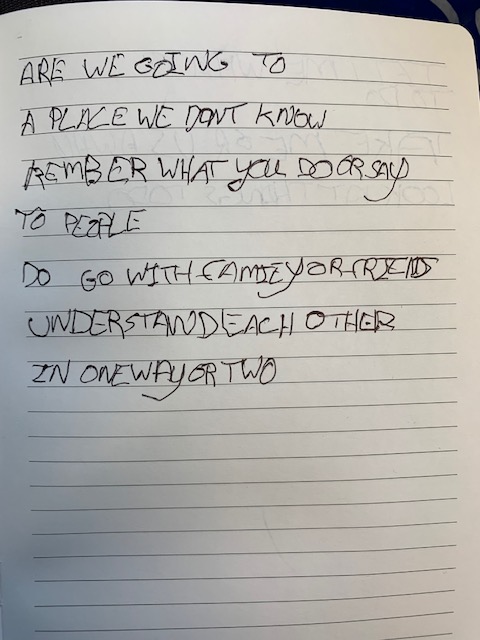 ARE WE GOING TO
A PLACE WE DONT KNOW
REMBER WHAT YOU DO OR SAY
TO PEOPLE
DO GO WITH FAMILY OR FRIENDS
UNDERSTAND EACH OTHER
IN ONE WAY OR TWO